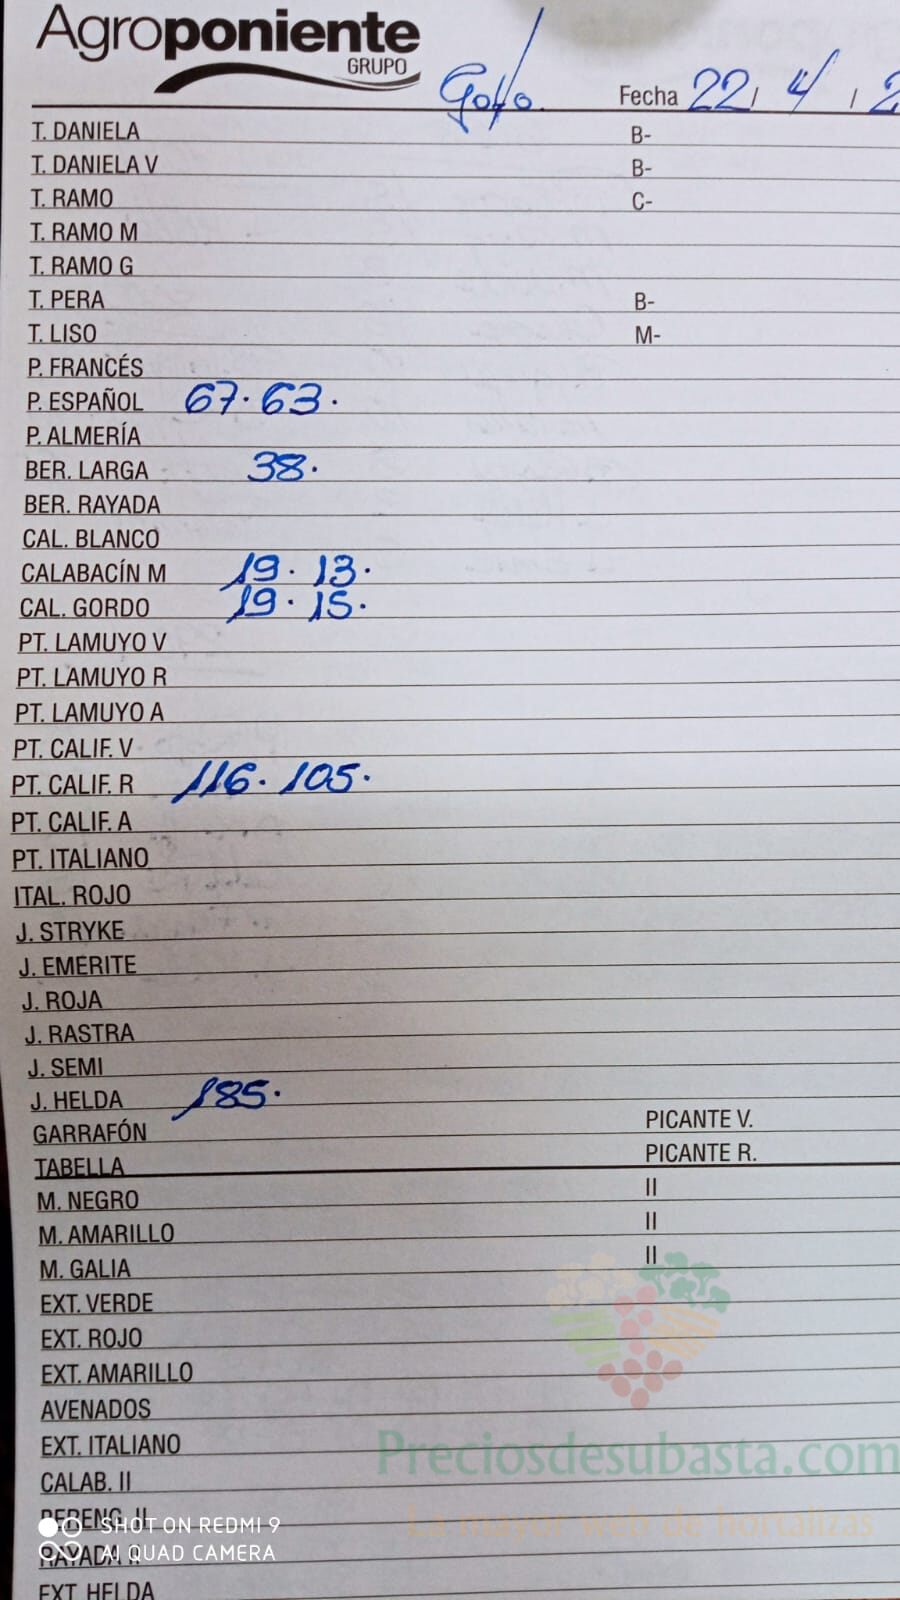 Agroponiente
GRUPO
Goyo. Fecha 22 / 4 / 2
T. DANIELA B-
T. DANIELA V B-
T. RAMO C-
T. RAMO M
T. RAMO G
T. PERA B-
T. LISO M-
P. FRANCÉS
P. ESPAÑOL 67. 63.
P. ALMERÍA
BER. LARGA 38.
BER. RAYADA
CAL. BLANCO
CALABACÍN M 19. 13.
CAL. GORDO 19. 15.
PT. LAMUYO V
PT. LAMUYO R
PT. LAMUYO A
PT. CALIF. V
PT. CALIF. R 116. 105.
PT. CALIF. A
PT. ITALIANO
ITAL. ROJO
J. STRYKE
J. EMERITE
J. ROJA
J. RASTRA
J. SEMI
J. HELDA 185.
GARRAFÓN PICANTE V.
TABELLA PICANTE R.
M. NEGRO II
M. AMARILLO II
M. GALIA II
EXT. VERDE
EXT. ROJO
EXT. AMARILLO
AVENADOS
EXT. ITALIANO
Preciosdesubasta.com
CALAB. II
La mayor web de hortalizas
BERENG. II
SHOT ON REDMI 9
RAYADA II
AI QUAD CAMERA
EXT. HELDA